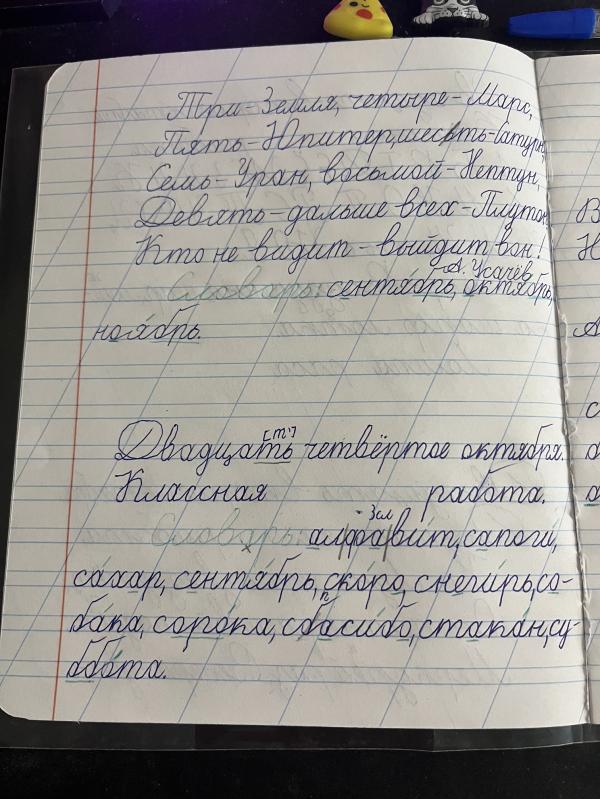 Три-Земля, четыре-Марс,
Пять-Юпитер, шесть-Сатурн,
Семь-Уран, восьмой-Нептун,
Девять-дальше всех-Плутон,
Кто не видит-выйдит вон!
А. Усачёв
Словарь: сентябрь, октябрь,
ноябрь.
[т']
Двадцать четвёртое октября.
Классная работа.
- Зсл
Словарь: алфавит, сапоги,
сахар, сентябрь, скоро, снегирь, со-
бака, сорока, спасибо, стакан, су-
ббота.
В
Н
А
с